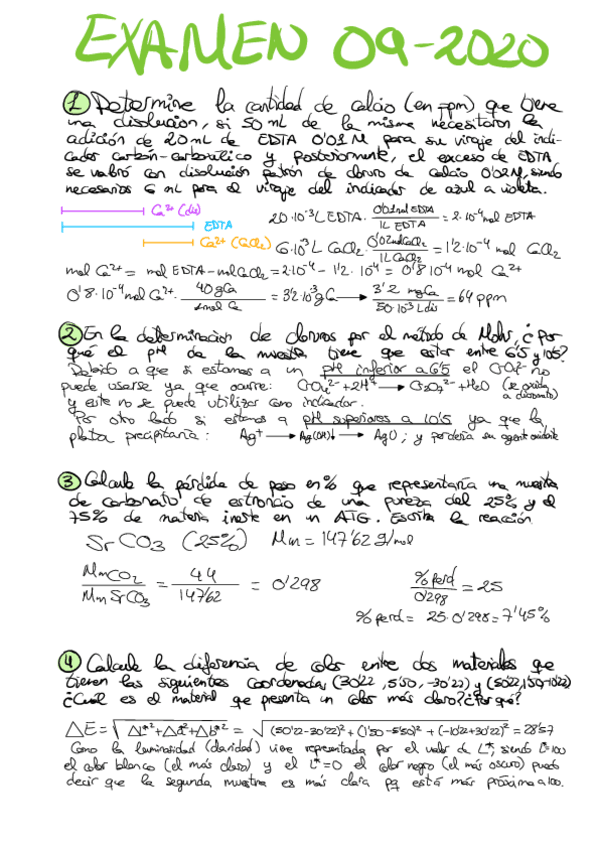 EXAMEN 09-2020
① Determine la cantidad de calcio (en ppm) que tiene
una disolución, si 50 mL de la misma necesitaron la
adición de 20 mL de EDTA 0'01 M para su viraje del indi-
cador carbón-carboxílico y posteriormente, el exceso de EDTA
se valoró con disolución patrón de cloruro de calcio 0'02M, siendo
necesarios 6 mL para el viraje del indicador de azul a violeta.
Ca²⁺ (dis)
EDTA
Ca²⁺ (CaCl₂)
20·10⁻³L EDTA · 0'01 mol EDTA / 1L EDTA = 2·10⁻⁴ mol EDTA
6·10⁻³ L CaCl₂ · 0'02 mol CaCl₂ / 1L CaCl₂ = 1'2·10⁻⁴ mol CaCl₂
mol Ca²⁺ = mol EDTA - mol CaCl₂ = 2·10⁻⁴ - 1'2·10⁻⁴ = 0'8·10⁻⁴ mol Ca²⁺
0'8·10⁻⁴ mol Ca²⁺ · 40 g Ca / 1 mol Ca = 3'2·10⁻³ g Ca → 3'2 mg Ca / 50·10⁻³ L dis = 64 ppm
② En la determinación de cloruros por el método de Mohr, ¿Por
qué el pH de la muestra tiene que estar entre 6'5 y 10'5?
Debido a que si estamos a un pH inferior a 6'5 el CrO₄²⁻ no
puede usarse ya que ocurre: CrO₄²⁻ + 2H⁺ → Cr₂O₇²⁻ + H₂O (se oxida
y este no se puede utilizar como indicador. a dicromato)
Por otro lado si estamos a pH superiores a 10'5 ya que la
plata precipitaría: Ag⁺ → Ag(OH)↓ → AgO; y perdería su agente oxidante
③ Calcule la pérdida de peso en % que representaría una muestra
de carbonato de estroncio de una pureza del 25% y el
75% de materia inerte en un ATG. Escriba la reacción.
SrCO₃ (25%) Mm = 147'62 g/mol
MmCO₂ / MmSrCO₃ = 44 / 147'62 = 0'298
% perd / 0'298 = 25
% perd = 25·0'298 = 7'45%
④ Calcule la diferencia de color entre dos materiales que
tienen las siguientes coordenadas (30'22, 5'50, -30'22) y (50'22, 1'50, -10'22)
¿Cuál es el material que presenta un color más claro? ¿Por qué?
ΔE = √ΔL*² + Δa*² + Δb*² = √(50'22-30'22)² + (1'50-5'50)² + (-10'22+30'22)² = 28'57
Como la luminosidad (claridad) viene representada por el valor de L*, siendo L*=100
el color blanco (el más claro) y el L*=0 el color negro (el más oscuro) puedo
decir que la segunda muestra es más clara pq está más próxima a 100.